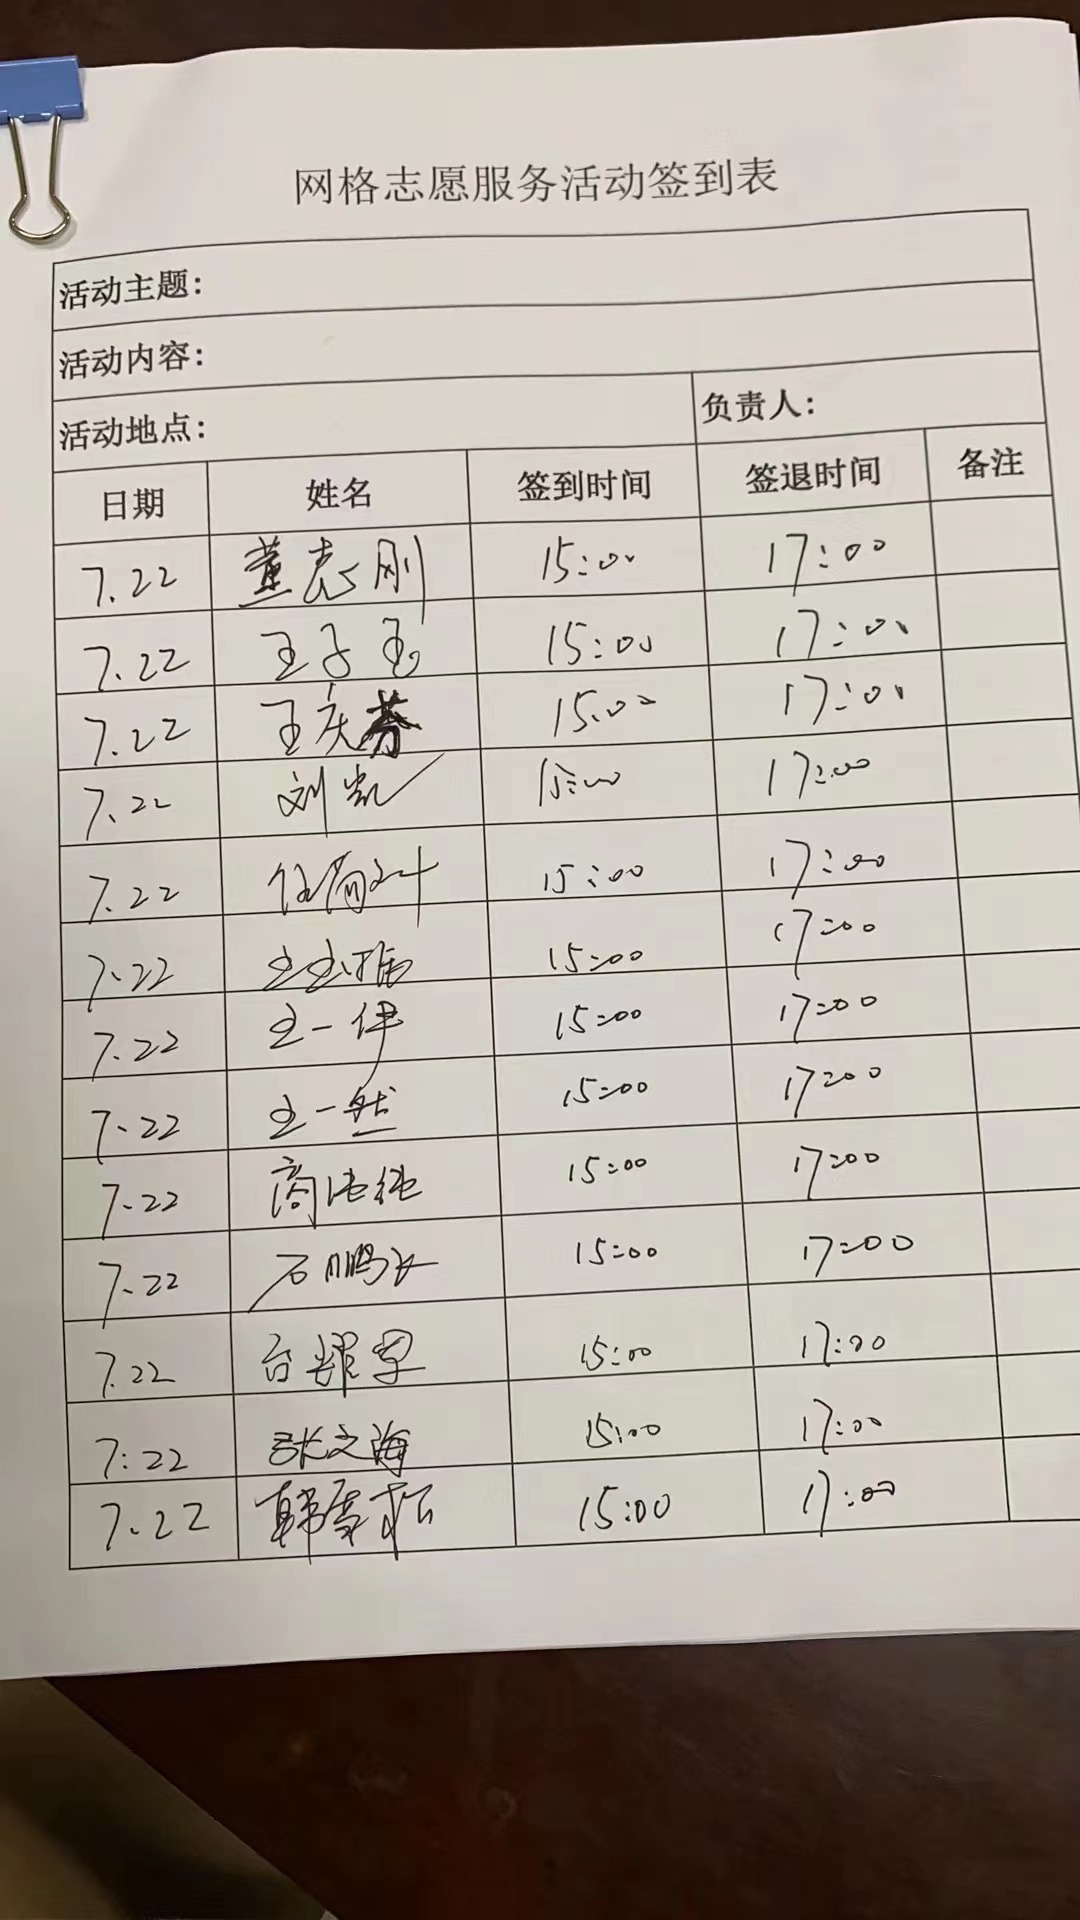 网格志愿服务活动签到表
活动主题：
活动内容：
活动地点： 负责人：
日期 姓名 签到时间 签退时间 备注
7.22 董志刚 15:00 17:00
7.22 王子玉 15:00 17:00
7.22 王庆芬 15:00 17:00
7.22 刘凯 15:00 17:00
7.22 15:00 17:00
7.22 15:00 17:00
7.22 王一伊 15:00 17:00
7.22 王一然 15:00 17:00
7.22 15:00 17:00
7.22 石鹏飞 15:00 17:00
7.22 15:00 17:00
7:22 张文海 15:00 17:00
7.22 15:00 17:00